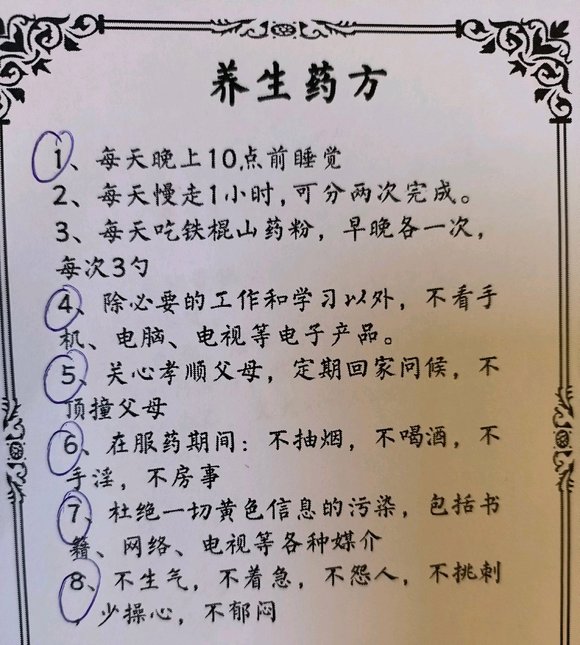 养生药方
1、每天晚上10点前睡觉
2、每天慢走1小时,可分两次完成。
3、每天吃铁棍山药粉，早晚各一次，
每次3勺
4、除必要的工作和学习以外，不看手
机、电脑、电视等电子产品。
5、关心孝顺父母，定期回家问候，不
顶撞父母
6、在服药期间：不抽烟，不喝酒，不
手淫，不房事
7、杜绝一切黄色信息的污染，包括书
籍、网络、电视等各种媒介
8、不生气，不着急，不怨人，不挑刺
，少操心，不郁闷